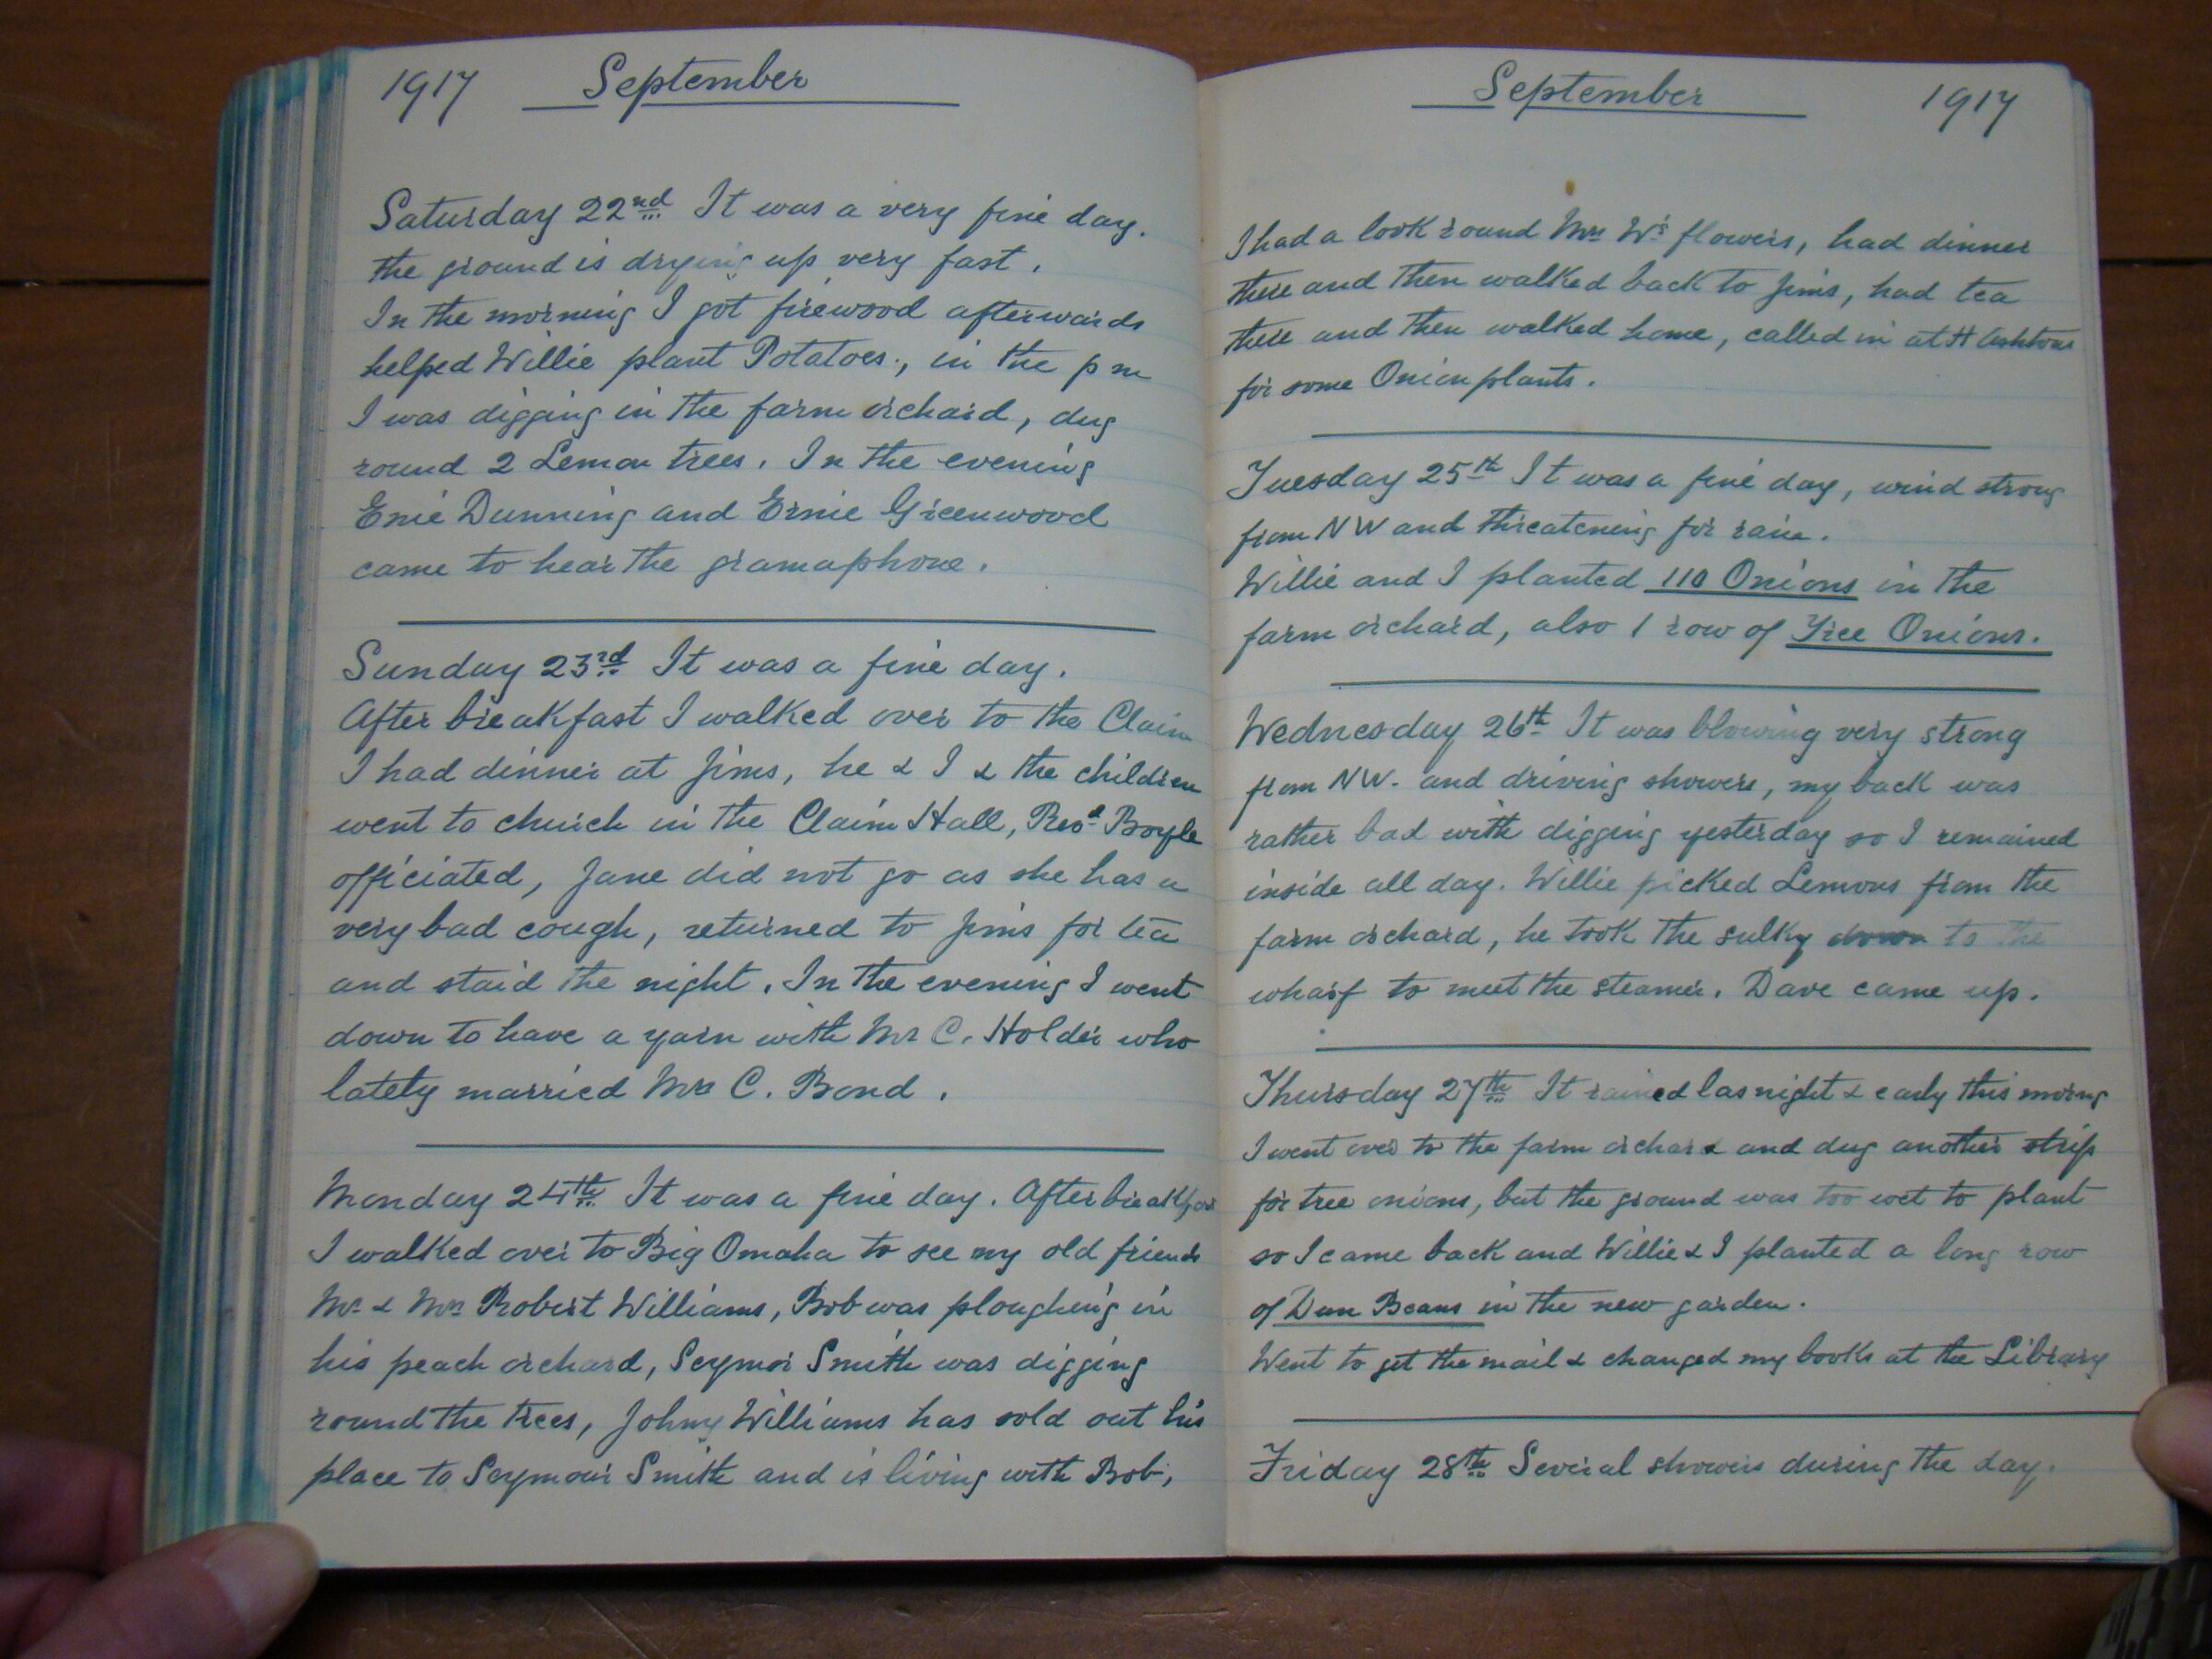 1917 September
Saturday 22nd It was a very fine day.
the ground is drying up very fast.
In the morning I got firewood afterwards
helped Willie plant Potatoes, in the pm
I was digging in the farm orchard, dug
round 2 Lemon trees. In the evening
Enie Dunning and Ernie Greenwood
came to hear the gramaphone.
Sunday 23rd It was a fine day.
After breakfast I walked over to the Claim
I had dinner at Jims, he & I & the children
went to church in the Claim Hall, Revd Boyle
officiated, Jane did not go as she has a
very bad cough, returned to Jims for tea
and staid the night. In the evening I went
down to have a yarn with Mr C. Holder who
lately married Mrs C. Bond.
Monday 24th It was a fine day. After breakfas
I walked over to Big Omaha to see my old friends
Mr & Mrs Robert Williams, Bob was ploughing in
his peach orchard, Seymor Smith was digging
round the trees, Johny Williams has sold out his
place to Seymour Smith and is living with Bob,
September 1917
I had a look round Mrs Ws flowers, had dinner
there and then walked back to Jims, had tea
there and then walked home, called in at H Ashtons
for some Onion plants.
Tuesday 25th It was a fine day, wind strong
from NW and threatening for rain.
Willie and I planted 110 Onions in the
farm orchard, also 1 row of Tree Onions.
Wednesday 26th It was blowing very strong
from NW. and driving showers, my back was
rather bad with digging yesterday so I remained
inside all day. Willie picked Lemons from the
farm orchard, he took the sulky down to the
wharf to meet the steamer. Dave came up.
Thursday 27th It rained las night & early this morng
I went over to the farm orchard and dug another strip
for tree onions, but the ground was too wet to plant
so I came back and Willie & I planted a long row
of Dun Beans in the new garden.
Went to get the mail & changed my books at the Library
Friday 28th Several showers during the day.